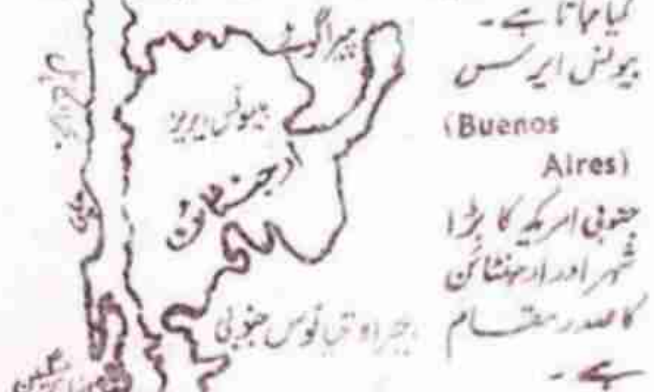 کہا جاتا ہے۔
بیونس ایرس
(Buenos
Aires)
جنوبی امریکہ کا بڑا
شہر اور ارجنٹائن
کا صدر مقام
ہے۔
پیراگوئے
بیونس ایریز
ارجنٹائن
چلی
جنوبی